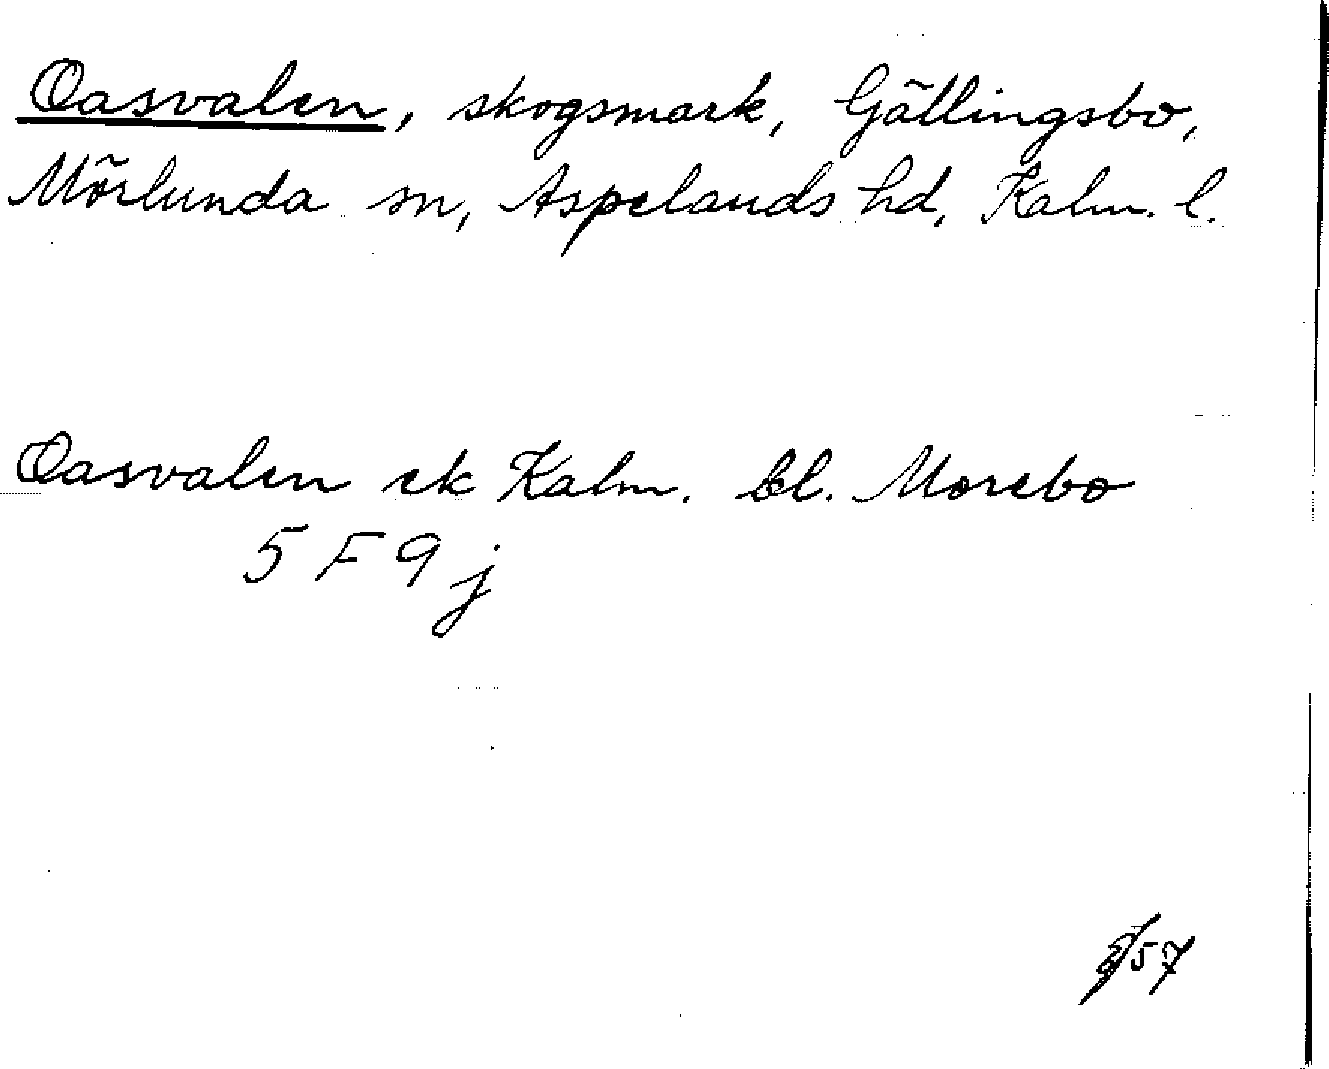 Oasvalen, skogsmark, Gällingsbo,
Mörlunda sn, Aspelands hd, Kalm. l.
Oasvalen ek Kalm. bl. Morebo
5 F 9 j
57